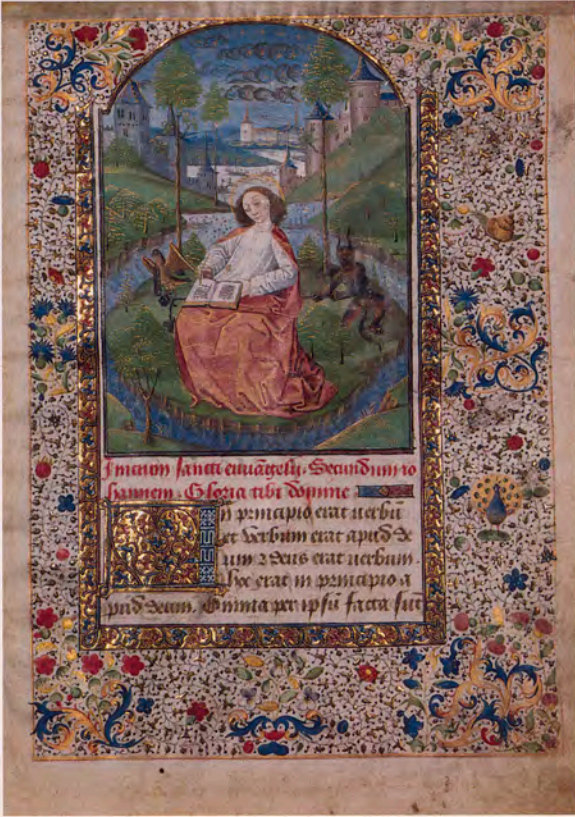 Inicium sancti euuãgelij. Secundum io
hannem. Gloria tibi domine
In principio erat uerbũ
et Verbum erat apud de
um ⁊ deus erat uerbum.
hoc erat in principio a
pud deum. Omnia per ipsũ facta sũt